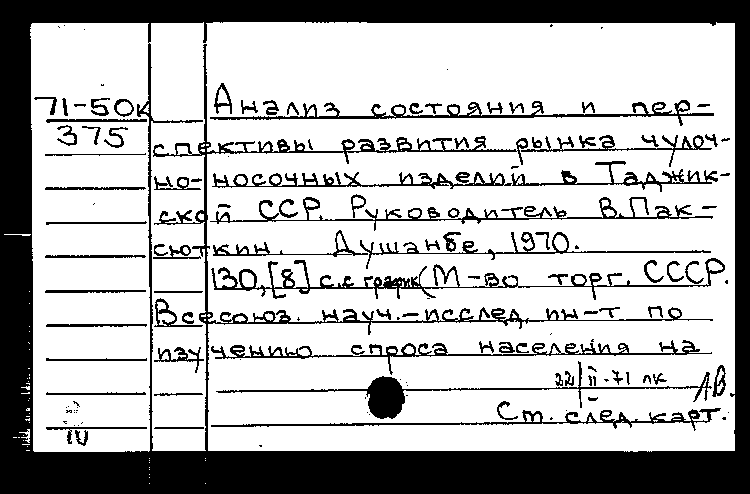 71-50к Анализ состояния и пер-
375 спективы развития рынка чулоч-
но-носочных изделий в Таджик-
ской ССР. Руководитель В.Пак-
сюткин. Душанбе, 1970.
130,[8] с.с график (М-во торг. СССР.
Всесоюз. науч.-исслед. ин-т по
изучению спроса населения на
22/II-71 лк АВ.
Ст. след. карт.